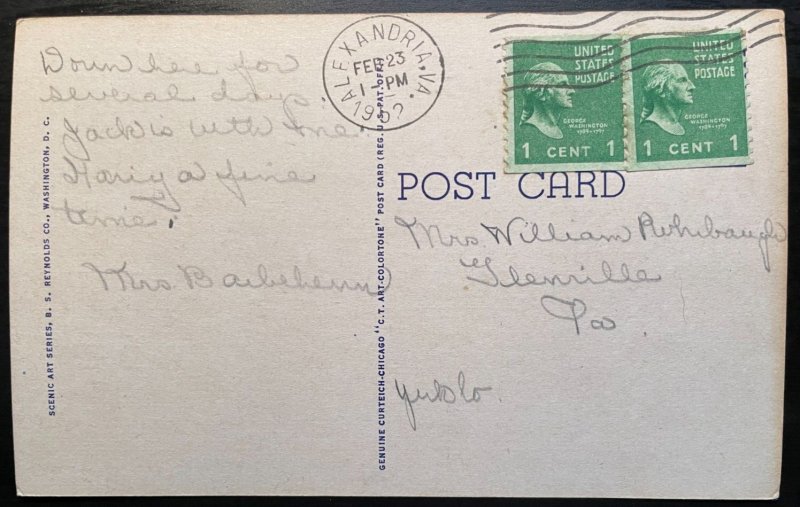 Down here for
several days.
Jack is with me.
Having a fine
time.
Mrs. Barbehenn
SCENIC ART SERIES, B. S. REYNOLDS CO., WASHINGTON, D. C.
GENUINE CURTEICH-CHICAGO "C.T. ART-COLORTONE" POST CARD (REG. U.S. PAT. OFF.)
ALEXANDRIA, VA.
FEB 23
PM
UNITED
STATES
POSTAGE
GEORGE
WASHINGTON
1789-1797
1 CENT 1
UNITED
STATES
POSTAGE
GEORGE
WASHINGTON
1789-1797
1 CENT 1
POST CARD
Mrs William Rohrbaugh
Glenville
Pa
York Co.